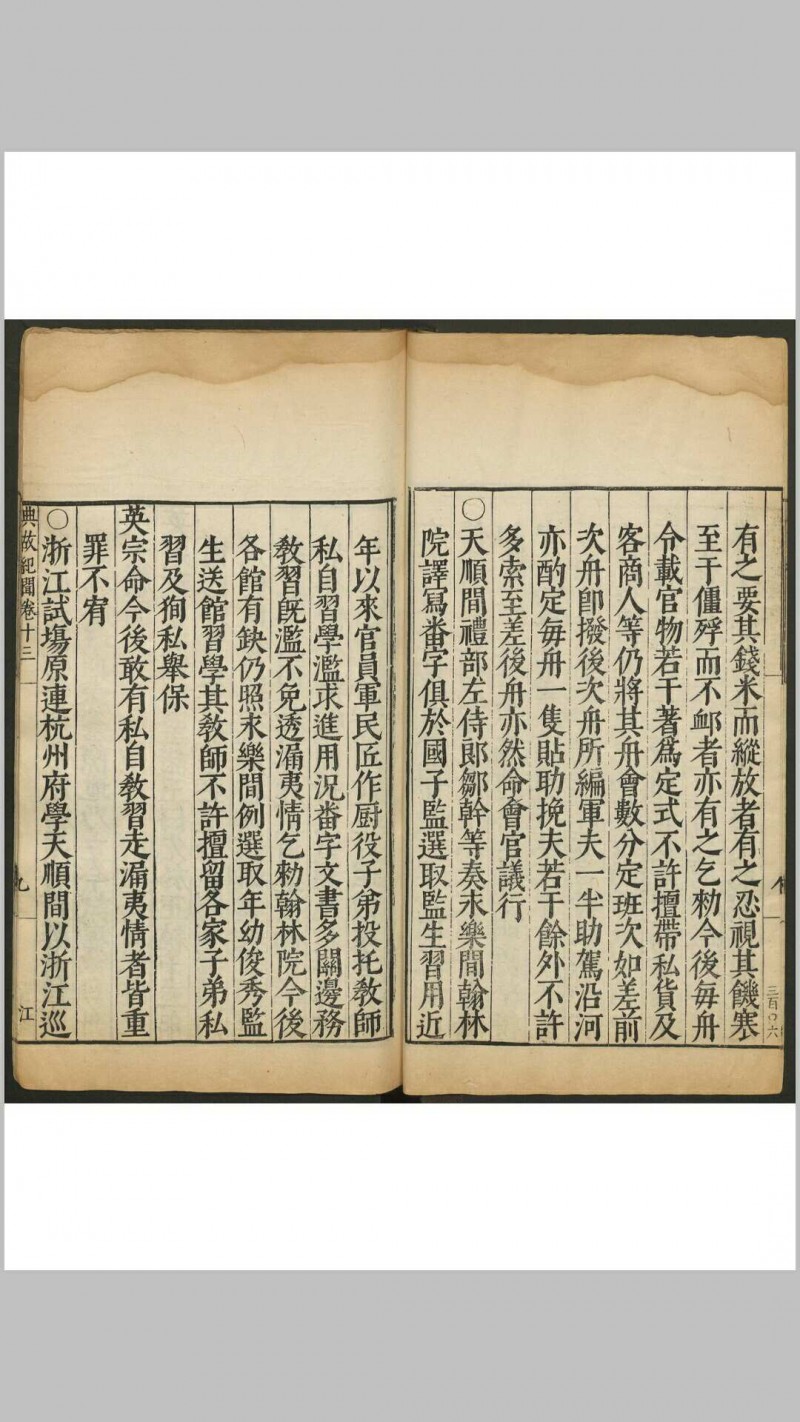 有之要其錢米而縱放者有之忍視其饑寒
至于僵殍而不䘏者亦有之乞勑今後每舟
令載官物若干著爲定式不許擅帶私貨及
客商人等仍將其舟會數分定班次如差前
次舟卽撥後次舟所編軍夫一半助駕沿河
亦酌定每舟一隻貼助挽夫若干餘外不許
多索至差後舟亦然命會官議行
○天順間禮部左侍郎鄒幹等奏永樂間翰林
院譯寫番字俱於國子監選取監生習用近
三百〇六
年以來官員軍民匠作厨役子弟投托教師
私自習學濫求進用況番字文書多關邊務
教習旣濫不免透漏夷情乞勑翰林院今後
各館有缺仍照永樂間例選取年幼俊秀監
生送館習學其教師不許擅留各家子弟私
習及徇私舉保
英宗命今後敢有私自教習走漏夷情者皆重
罪不宥
○浙江試場原連杭州府學天順間以浙江巡
典故紀聞卷十三
九
江